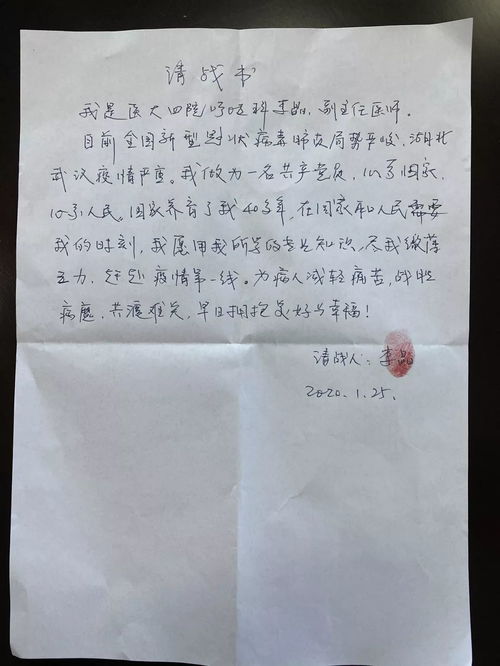 请战书
我是医大四院呼吸科李晶，副主任医师。
目前全国新型冠状病毒肺炎局势严峻，湖北
武汉疫情严重。我做为一名共产党员，为了国家，
为了人民。国家养育了我40多年，在国家和人民需要
我的时刻，我愿用我所学的专业知识，尽我微薄
之力，赶赴疫情第一线。为病人减轻痛苦，战胜
病魔，共渡难关，早日拥抱美好与幸福！
请战人：李晶
2020.1.25.